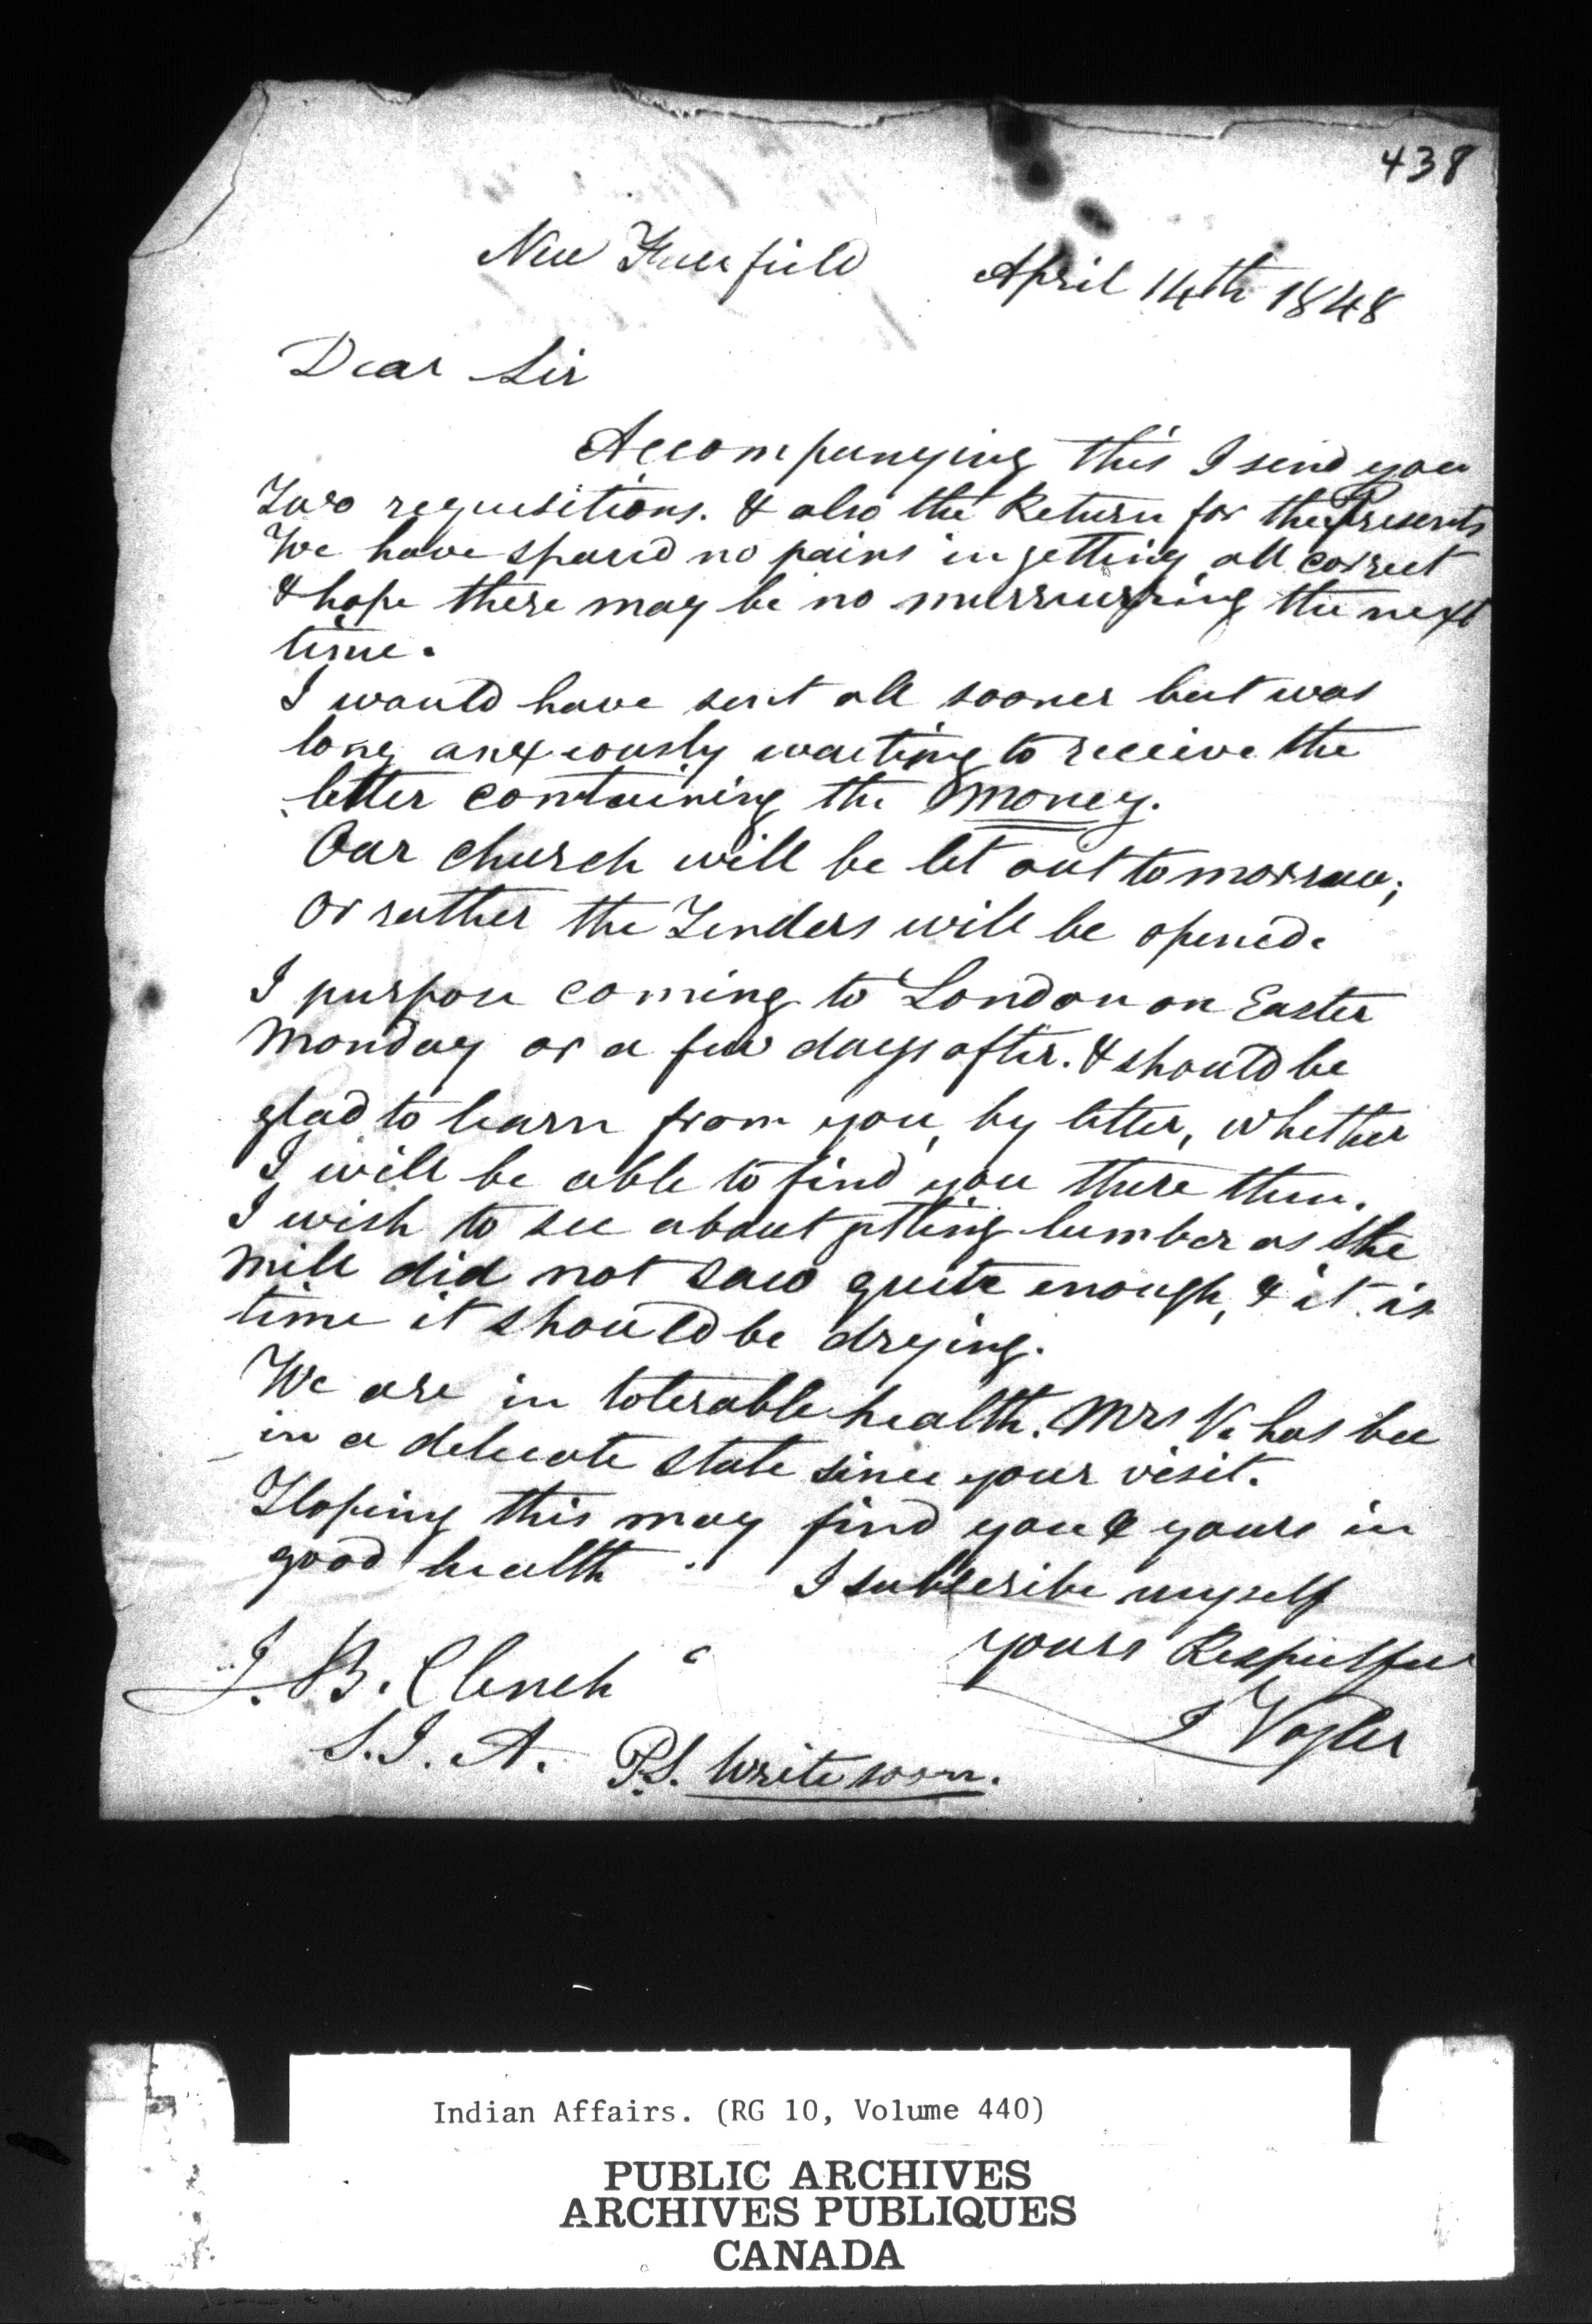 438
New Fairfield April 14th 1848
Dear Sir
Accompanying this I send you
Two requisitions. & also the Return for the Presents
We have spared no pains in getting all correct
& hope there may be no murmuring the next
time.
I would have sent all sooner but was
long anxiously waiting to receive the
letter containing the money.
Our church will be let out tomorrow;
or rather the Tenders will be opened.
I purpose coming to London on Easter
Monday or a few days after. & should be
glad to learn from you, by letter, whether
I will be able to find you there then.
I wish to see about getting lumber as the
mill did not saw quite enough, & it is
time it should be drying.
We are in tolerable health. Mrs V. has bee
in a delicate state since your visit.
Hoping this may find you & yours in
good health. I subscribe myself
yours Respectful
J. B. Clench
J Vogler
S. I. A. P.S. Write soon.
Indian Affairs. (RG 10, Volume 440)
PUBLIC ARCHIVES
ARCHIVES PUBLIQUES
CANADA